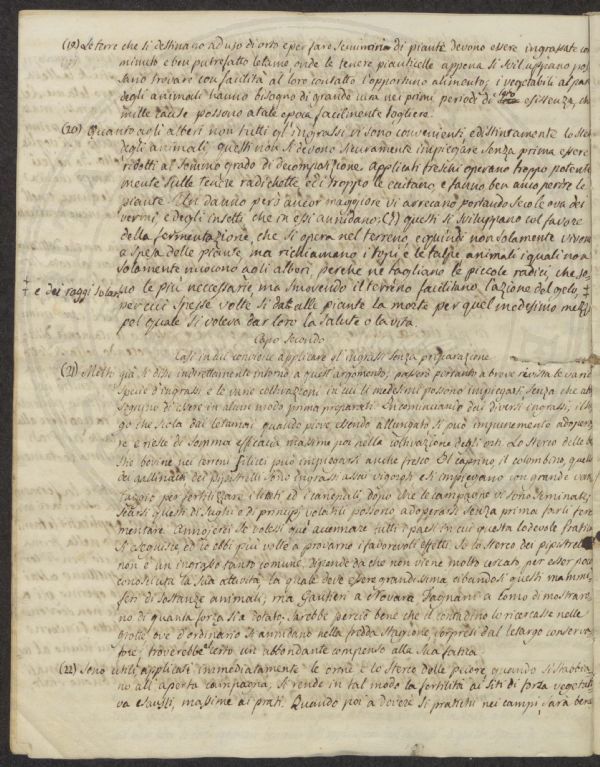 (19) Le terre che si destinano ad uso di orto e per fare seminaria di piante devono essere ingrassate co
minuto e ben putrefatto letame, onde le tenere pianticelle appena si sviluppano pos
sano trovare con facilità al loro contatto l'opportuno alimento; i vegetabili al par
degli animali hanno bisogno di grande cura nei primi periodi di loro esistenza, ch
mille cause possono a tale epoca facilmente togliere.
(20) Quanto agli alberi non tutti gl'ingrassi vi sono convenienti e distintamente lo ster
degli animali; questi non si devono sicuramente impiegare senza prima essere
ridotti al sommo grado di decomposizione. Applicati freschi operano troppo potente
mente sulle tenere radichette ed troppo le eccitano, e fanno ben anco perire le
piante. Un danno però ancor maggiore vi arrecano portando seco le ova dei
vermi, e degli insetti che in essi annidano; questi si sviluppano col favore
della fermentazione, che si opera nel terreno e quindi non solamente vivono
a spesa delle piante, ma richiamano i topi e le talpe animali i quali non s
solamente nuocono agli alberi, perchè ne tagliano le piccole radici, che so
‡ e dei raggi solari
no le più necessarie, ma smovendo il terreno facilitano l'azione del gelo ‡
per cui spesse volte si dà alle piante la morte per quel medesimo mezz
pel quale si voleva dar loro la salute o la vita.
Capo Secondo
Casi in cui conviene applicare gl'ingrassi senza preparazione
(21) Molto già si disse indirettamente intorno a quest'argomento; passerò pertanto a breve rivista le varie
specie d'ingrassi e le varie coltivazioni in cui li medesimi possono impiegarsi senza che ab
bisognino di essere in alcun modo prima preparati. Incominciando dai diversi ingrassi, il su
go che scola dai letamai quando piove essendo allungato si può impunemente adopera
re e riesce di somma efficacia massime poi nella coltivazione degli orti. Lo sterco delle be
stie bovine nei terreni silicei può impiegarsi anche fresco. Il caprino, il colombino, quello
dei gallinacci dei pipistrelli sono ingrassi assai vigorosi e si impiegano con grande van
taggio per fertilizzare i lineti ed i canepuli; dopo che le campagne vi sono seminate;
scarsi questi di sughi e di principj volatili possono adoperarsi senza prima farli fer
mentare. Annojerei se volessi qui accennare tutti i paesi in cui questa lodevole pratica
si eseguisce ed io ebbi più volte a provarne i favorevoli effetti. Se lo sterco dei pipistrelli
non è un ingrasso tanto comune, dipende da che non viene molto cercato per esser poco
conosciuta la sua attività, la quale deve essere grandissima cibandosi questi mammi
feri di sostanze animali; ma Gautieri a Novara Fagnani a Lomo dimostraro
no di quanta forza sia dotato. Sarebbe perciò bene che il contadino lo ricercasse nelle
grotte ove d'ordinario si annidano nella fredda stagione, sorpresi dal letargo conserva
tore; troverebbe certo un abbondante compenso alla sua fatica.
(22) Sono utili applicati immediatamente le orine e lo sterco delle pecore, quando si stabbia
no all'aperta campagna, si rende in tal modo la fertilità ai siti di forza vegetati
va esausti, massime ai prati. Quando poi a dovere si pratichi nei campi sarà bene